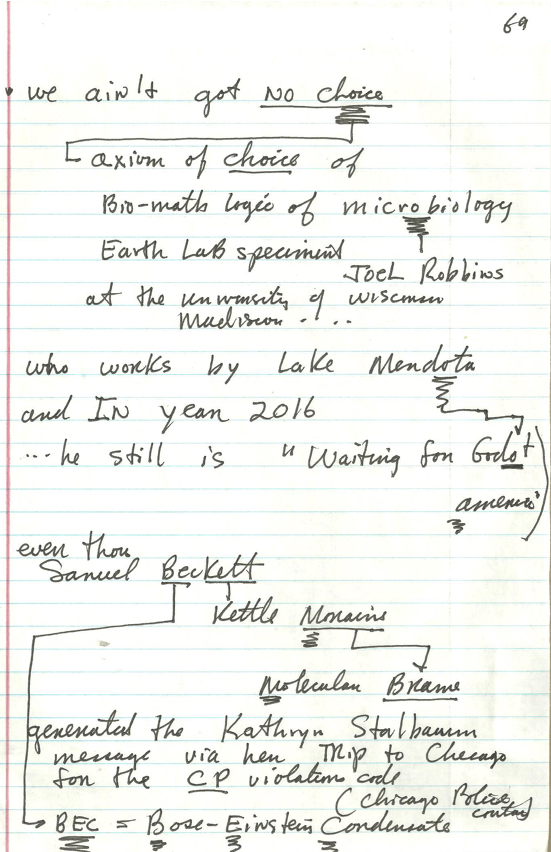 69
we ain't got NO choice
axium of choice of
Bio-math logic of microbiology
Earth LaB speciment
JoeL Robbins
at the university of wisconsin
Madison ....
who works by Lake Mendota
and IN year 2016
...he still is "Waiting for Godot
even thou
Samuel Beckett
Kettle Moraine
Molecular
generated the Kathryn Stalbaum
message via her TRip to Chicago
for the CP violation code
(Chicago Police
BEC = Bose-Einstein Condensate